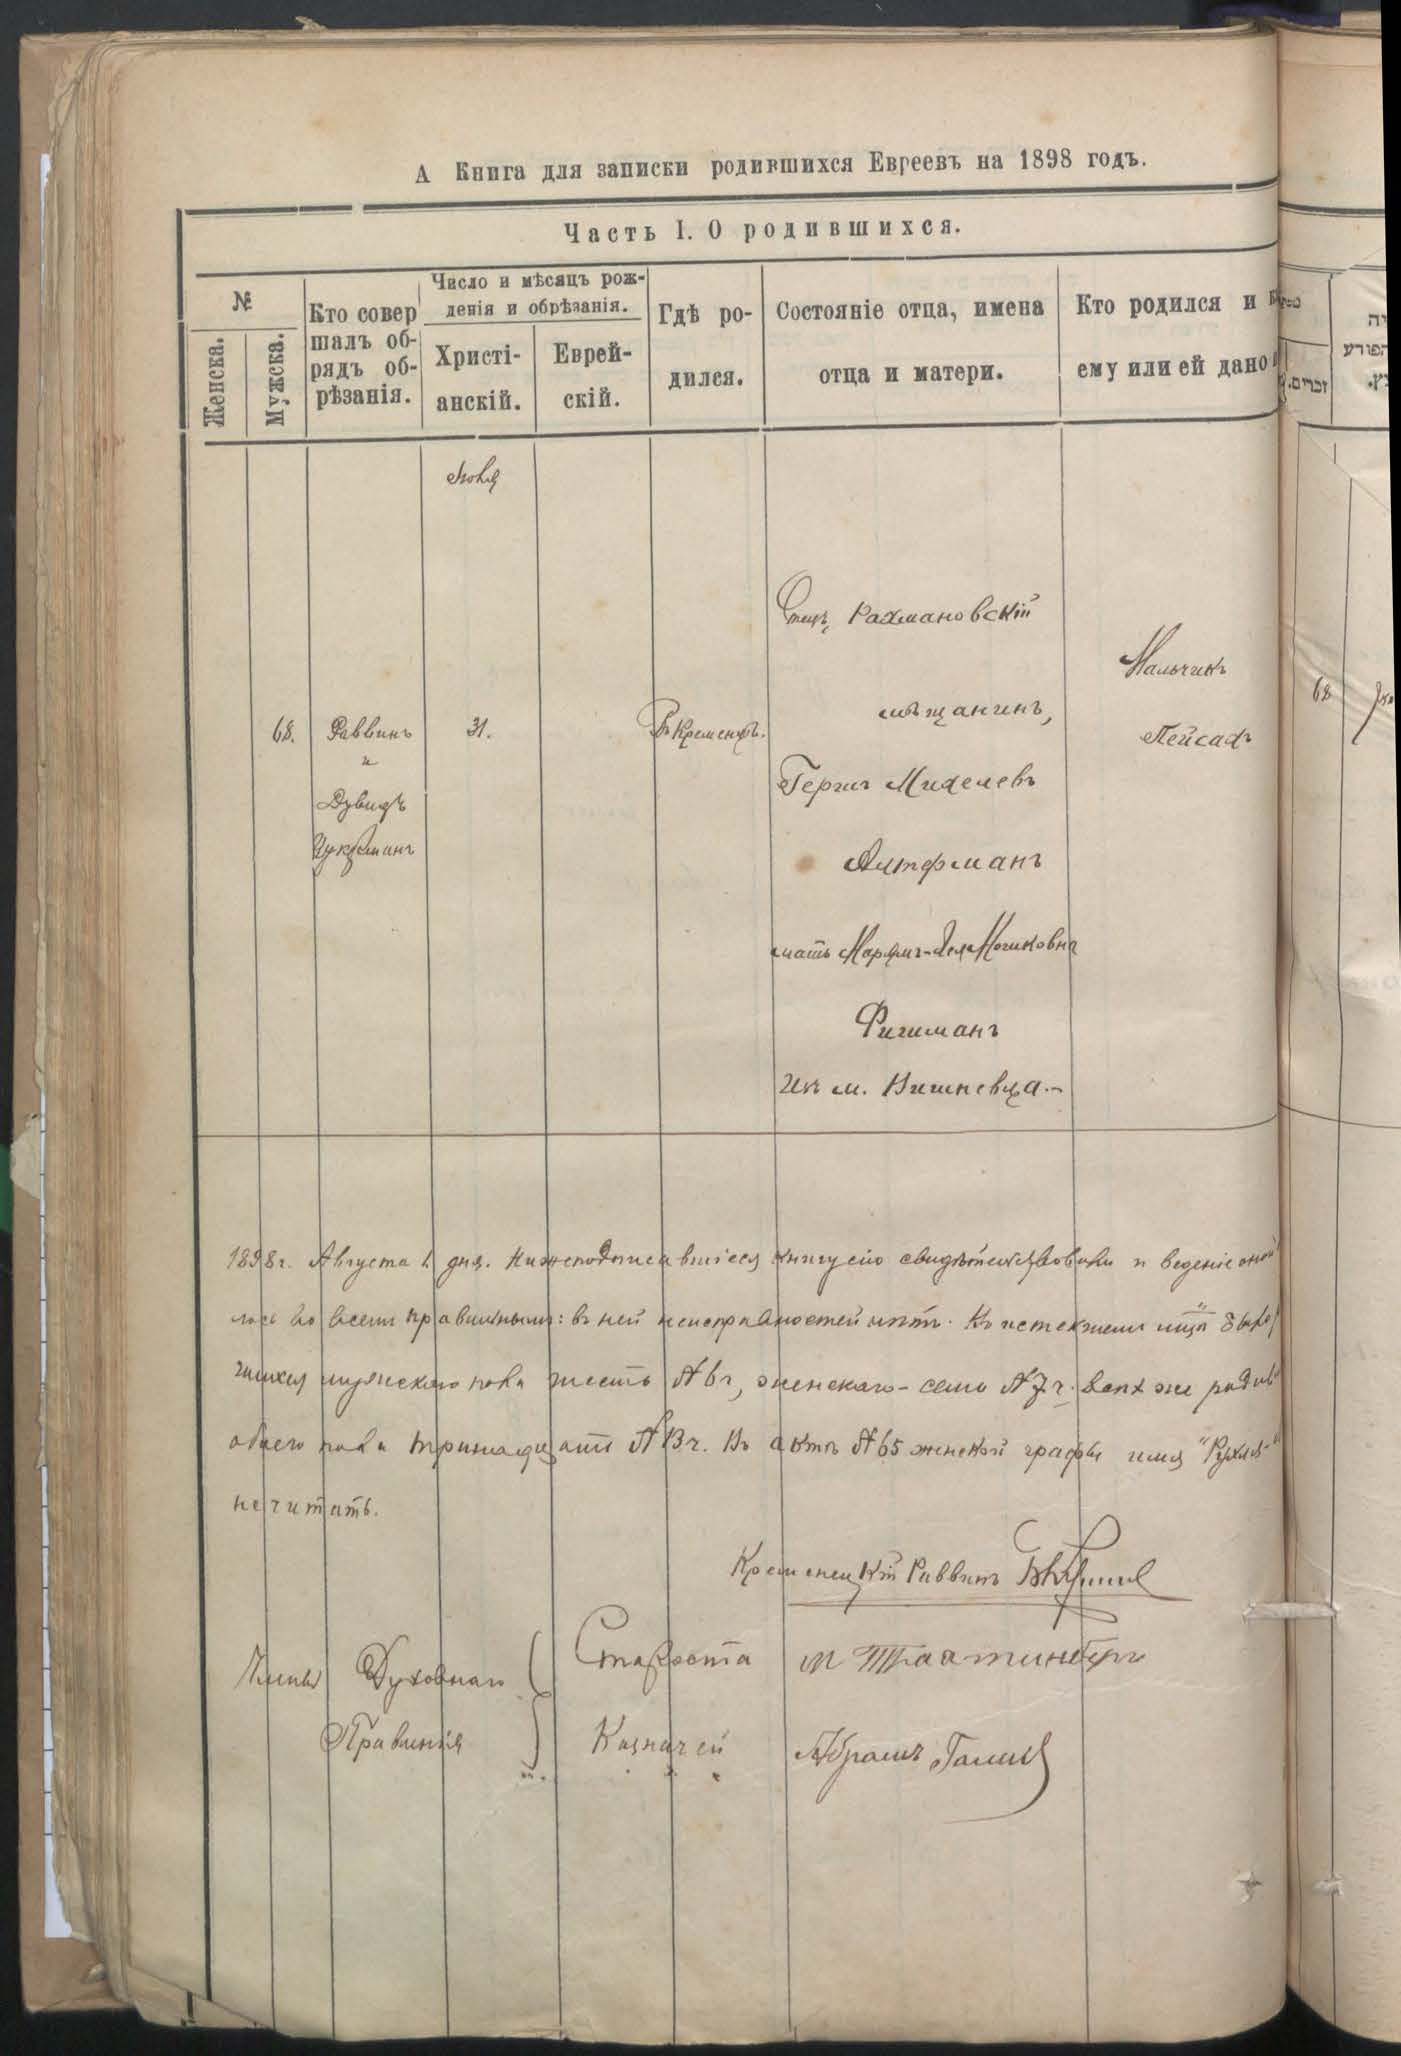 А Книга для записки родившихся Евреевъ на 1898 годъ.
Часть I. О родившихся.
№
Женска.
Мужска.
Кто совер
шалъ об-
рядъ об-
рѣзанія.
Число и мѣсяцъ рож-
денія и обрѣзанія.
Христі-
анскій.
Еврей-
скій.
Гдѣ ро-
дился.
Состояніе отца, имена
отца и матери.
Кто родился и
ему или ей дано
זכרים.
הפורע
Іюля
68.
Раввинъ
и
Дувидъ
Цукерманъ
31.
Въ Кременцѣ.
Отецъ, Рахмановскій
мѣщанинъ,
Гершъ Михелевъ
Алтерманъ
мать Марьямъ- Мошковна
Фишманъ
Изъ м. Вишневца.-
Мальчикъ
Пейсахъ
68
1898 г. Августа 1 дня. Нижеподписавшіеся книгу сію свидѣтельствовали и веденіе оной
лось во всемъ правильнымъ: въ ней неисправностей нѣтъ. Къ истекшемъ мцѣ было
шихся мужскаго пола шесть № 6 ч, женскаго - семь № 7 ч. Всѣхъ же родив
обоего пола тринадцать № 13 ч. Въ актѣ № 65 женской графы имя "Рухля-"
не читать.
Кременецкій Раввинъ
Члены Духовнаго
Правленія
Староста
Казначей
Абрамъ